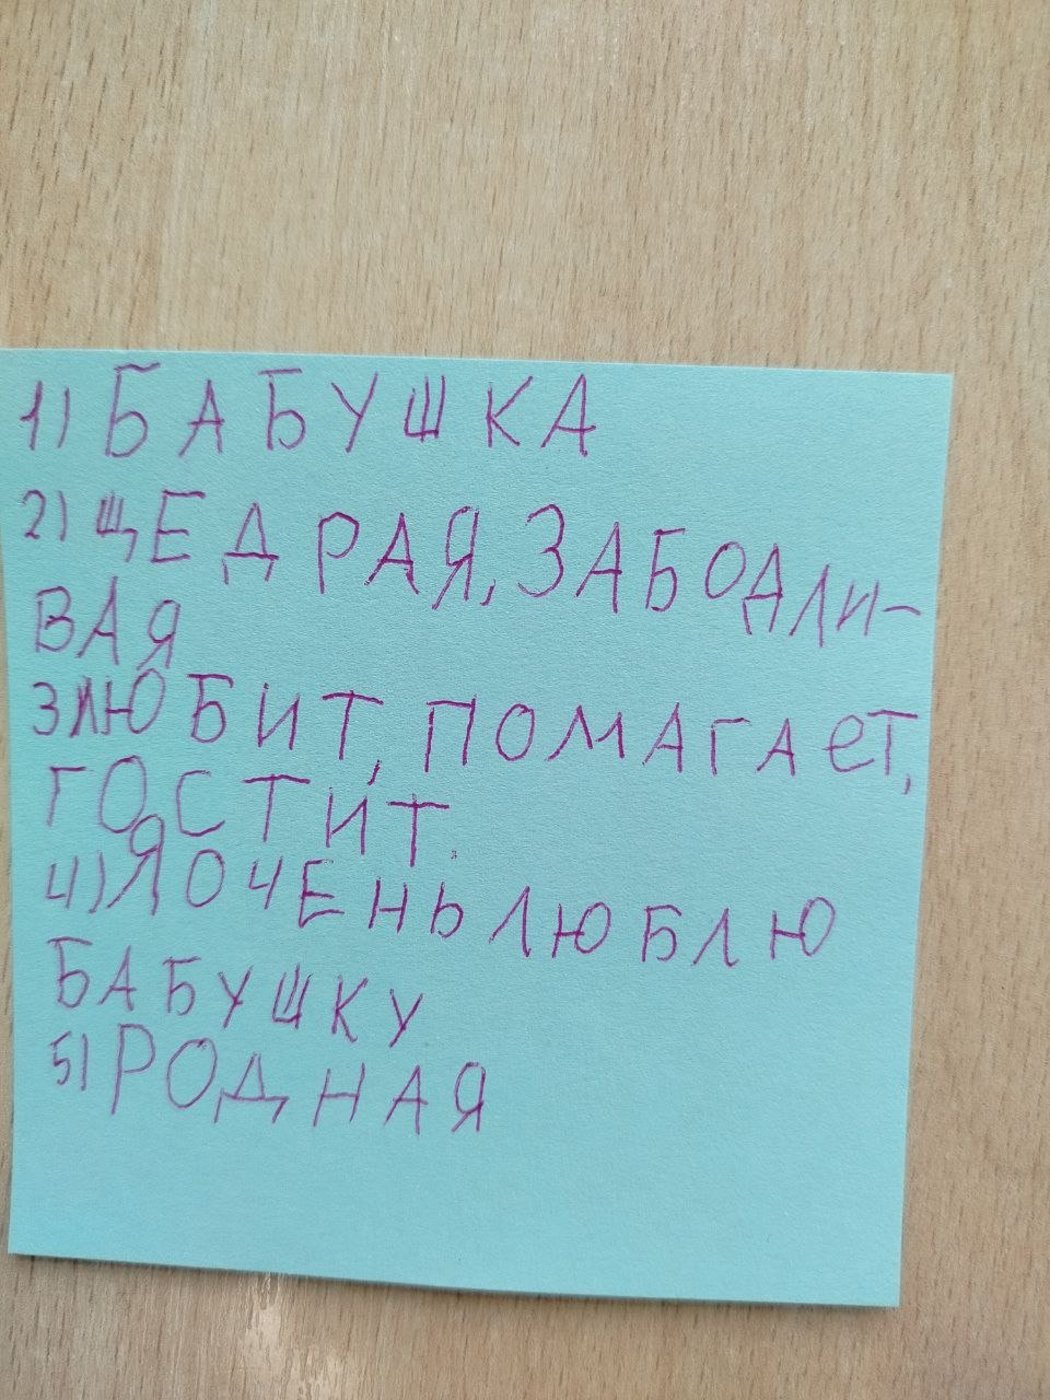 1) БАБУШКА
2) ЩЕДРАЯ, ЗАБОДЛИ-
ВАЯ
3 ЛЮБИТ, ПОМАГАЕТ,
ГОСТИТ.
4) Я ОЧЕНЬ ЛЮБЛЮ
БАБУШКУ
5) РОДНАЯ